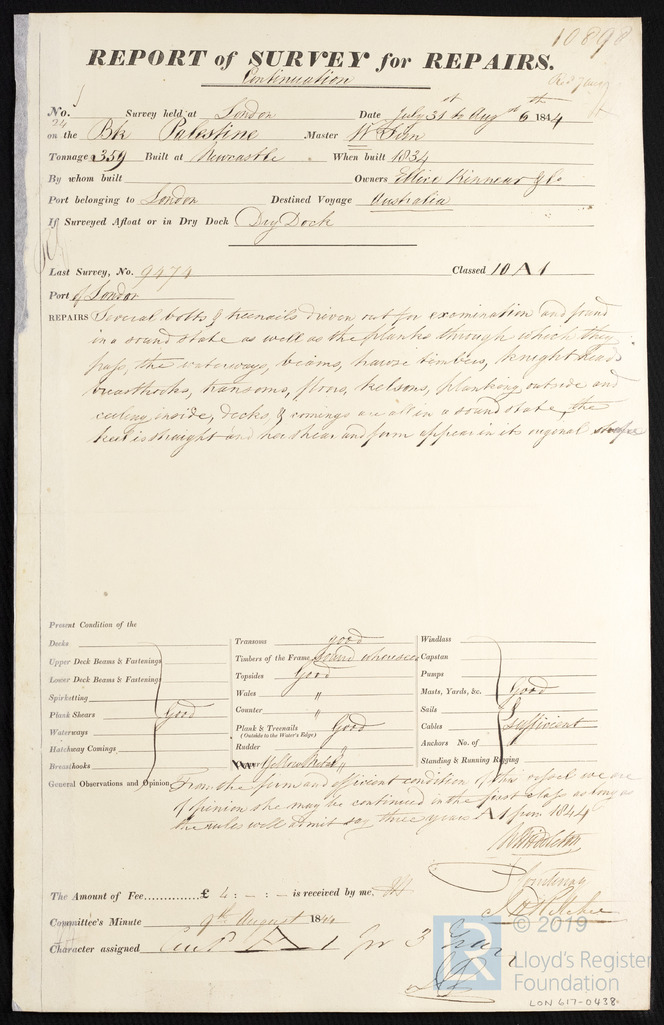 10898
REPORT of SURVEY for REPAIRS.
Continuation
No. 24 Survey held at London Date July 31st to Augst 6th 1844
on the Bk Palestine Master W.
Tonnage 359 Built at Newcastle When built 1834
By whom built Owners Ellice Kinnear & Co
Port belonging to London Destined Voyage Australia
If Surveyed Afloat or in Dry Dock Dry Dock
Last Survey, No. 9474 Classed 10 A 1
Port of London
REPAIRS Several bolts & treenails driven out for examination and found
in a sound state as well as the planks through which they
pass, the waterways, beams, hawse timbers, knight heads
breasthooks, transoms, floors, kelsons, planking outside and
ceeling inside, decks, & comings are all in a sound state, the
keel is straight and her shear and form appear in its orgonal
Present Condition of the
Decks
Upper Deck Beams & Fastenings
Lower Deck Beams & Fastenings
Spirketting
Plank Shears Good
Waterways
Hatchway Comings
Breasthooks
Transoms good
Timbers of the Frame Sound where seen
Topsides Good
Wales "
Counter "
Plank & Treenails Good
(Outside to the Water's Edge)
Rudder "
Yellow Metal "
Windlass
Capstan
Pumps
Masts, Yards, &c. Good
Sails
Cables & sufficient
Anchors No. of
Standing & Running Rigging
General Observations and Opinion, From the firm and efficient condition of this vessel we are
of opinion she may be continued in the first class as long as
the rules will admit say three years A 1 from 1844
The Amount of Fee.............. £ 4 : - : - is received by me,
Committee's Minute 9th August 1844
Character assigned A 1 for 3 Years
© 2019
Lloyd's Register
Foundation
LON 617-0438